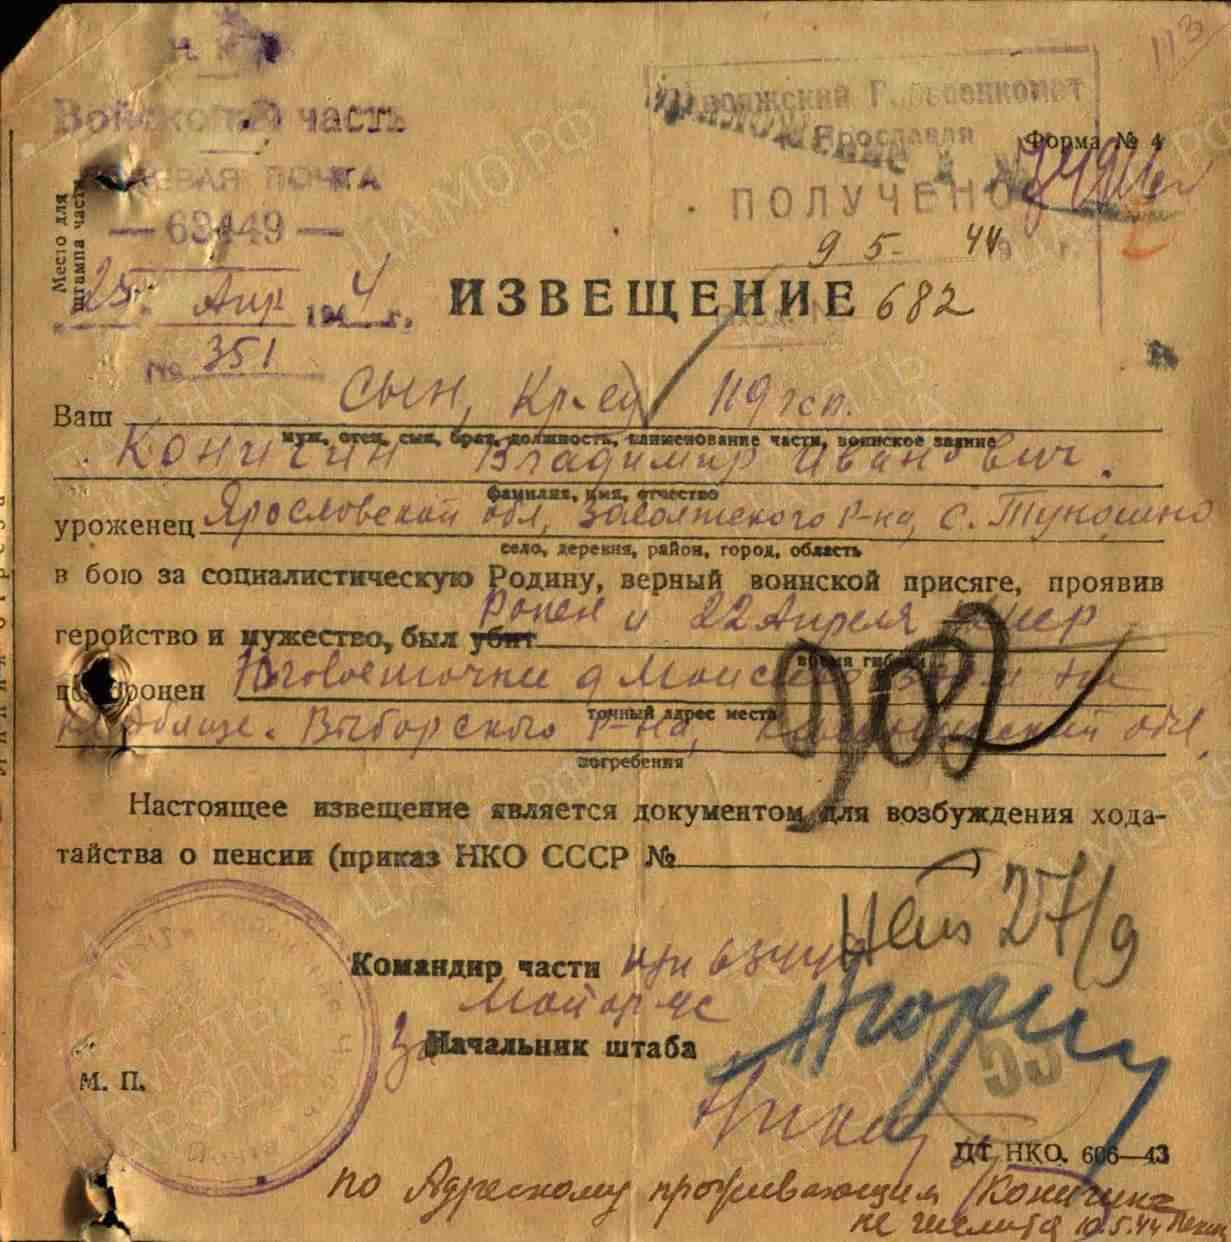 113
Войсковая часть
ПОЛЕВАЯ ПОЧТА
— 63449 —
Место для
штампа части
25 Апр 1944 г.
№ 351
Заволжский Горвоенкомат
Ярославля
Форма № 4
ПОЛУЧЕНО
9 5- 44 г.
ИЗВЕЩЕНИЕ 682
Ваш сын, Кр-ец 119 гсп.
муж, отец, сын, брат, должность, наименование части, воинское звание
Коничин Владимир Иванович.
фамилия, имя, отчество
уроженец Ярословской обл, Заволжского р-на, с. Туношно
село, деревня, район, город, область
в бою за социалистическую Родину, верный воинской присяге, проявив
геройство и мужество, был убит Ранен и 22 Апреля умер
время гибели
похоронен Юговосточнее д
точный адрес места
кладбище. Выборского р-на, Калининский обл.
погребения
Настоящее извещение является документом для возбуждения хода-
тайства о пенсии (приказ НКО СССР № )
902
27/9
Командир части
Майор
За Начальник штаба
М. П.
55
ЦТ НКО. 606—43
по Адресному проживающим Коничина
не числится 10.5.44
ПАМЯТЬ НАРОДА
ЦАМО.РФ